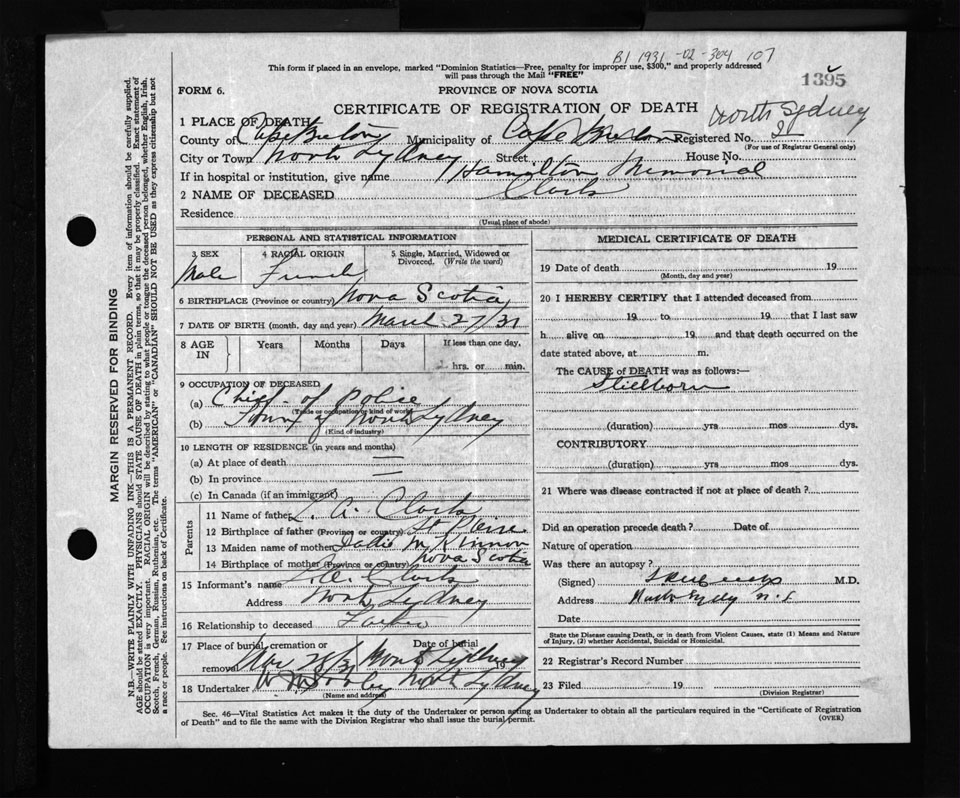 B1 1931 -02- 304 107
This form if placed in an envelope, marked "Dominion Statistics—Free, penalty for improper use, $300," and properly addressed
will pass through the Mail "FREE"
1395
FORM 6.
PROVINCE OF NOVA SCOTIA
CERTIFICATE OF REGISTRATION OF DEATH
North Sydney
1 PLACE OF DEATH
County of Cape Breton Municipality of Cape Breton Registered No.
(For use of Registrar General only)
City or Town North Sydney Street House No.
If in hospital or institution, give name Hamilton Memorial
2 NAME OF DECEASED Clark
Residence
(Usual place of abode)
PERSONAL AND STATISTICAL INFORMATION
3 SEX 4 RACIAL ORIGIN 5 Single, Married, Widowed or Divorced. (Write the word)
Male French
6 BIRTHPLACE (Province or country) Nova Scotia
7 DATE OF BIRTH (month, day and year) March 27/31
8 AGE IN Years Months Days If less than one day, hrs. or min.
9 OCCUPATION OF DECEASED
(a) Chief of Police
(Trade or occupation or kind of work)
(b) Town of North Sydney
(Kind of industry)
10 LENGTH OF RESIDENCE (in years and months)
(a) At place of death —
(b) In province —
(c) In Canada (if an immigrant)
Parents
11 Name of father L. A. Clark
12 Birthplace of father (Province or country) St Pierre
13 Maiden name of mother Sadie McKinnon
14 Birthplace of mother (Province or country) Nova Scotia
15 Informant's name L. A. Clark
Address North Sydney
16 Relationship to deceased Father
17 Place of burial, cremation or removal Date of burial 19
Mar 28/31 North Sydney
18 Undertaker North Sydney
(Name and address)
MEDICAL CERTIFICATE OF DEATH
19 Date of death 19
(Month, day and year)
20 I HEREBY CERTIFY that I attended deceased from
19 to 19 that I last saw
h alive on 19 and that death occurred on the
date stated above, at m.
The CAUSE of DEATH was as follows:—
Stillborn
(duration) yrs mos dys.
CONTRIBUTORY
(duration) yrs mos dys.
21 Where was disease contracted if not at place of death?
Did an operation precede death? Date of
Nature of operation
Was there an autopsy?
(Signed) M.D.
Address North Sydney N.S
Date
State the Disease causing Death, or in death from Violent Causes, state (1) Means and Nature
of Injury, (2) whether Accidental, Suicidal or Homicidal.
22 Registrar's Record Number
23 Filed 19
(Division Registrar)
Sec. 46—Vital Statistics Act makes it the duty of the Undertaker or person acting as Undertaker to obtain all the particulars required in the "Certificate of Registration
of Death" and to file the same with the Division Registrar who shall issue the burial permit.
(OVER)
MARGIN RESERVED FOR BINDING
N.B.—WRITE PLAINLY WITH UNFADING INK—THIS IS A PERMANENT RECORD. Every item of information should be carefully supplied.
AGE should be stated EXACTLY. PHYSICIANS should STATE CAUSE OF DEATH in plain terms, so that it may be properly classified. Exact statement of
OCCUPATION is very important. RACIAL ORIGIN will be described by stating to what people or tongue the deceased person belonged, whether English, Irish,
Scotch, French, German, Russian, Ruthenian, etc. The terms "AMERICAN" or "CANADIAN" SHOULD NOT BE USED as they express citizenship but not
a race or people. See instructions on back of Certificate.